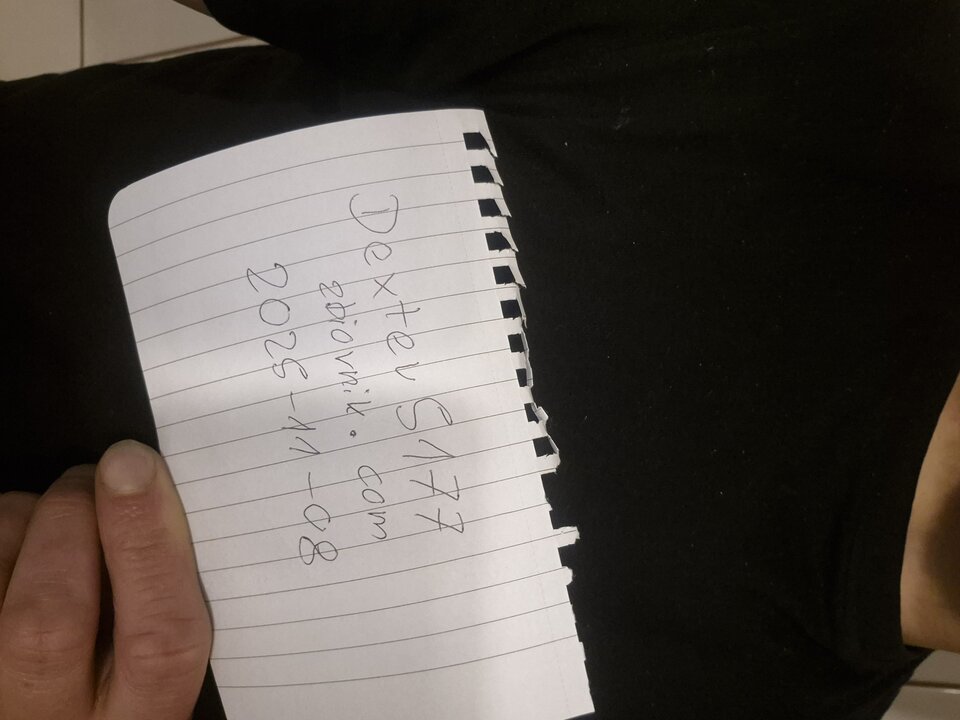 Dexter S177
zbiornik.com
2025-11-08